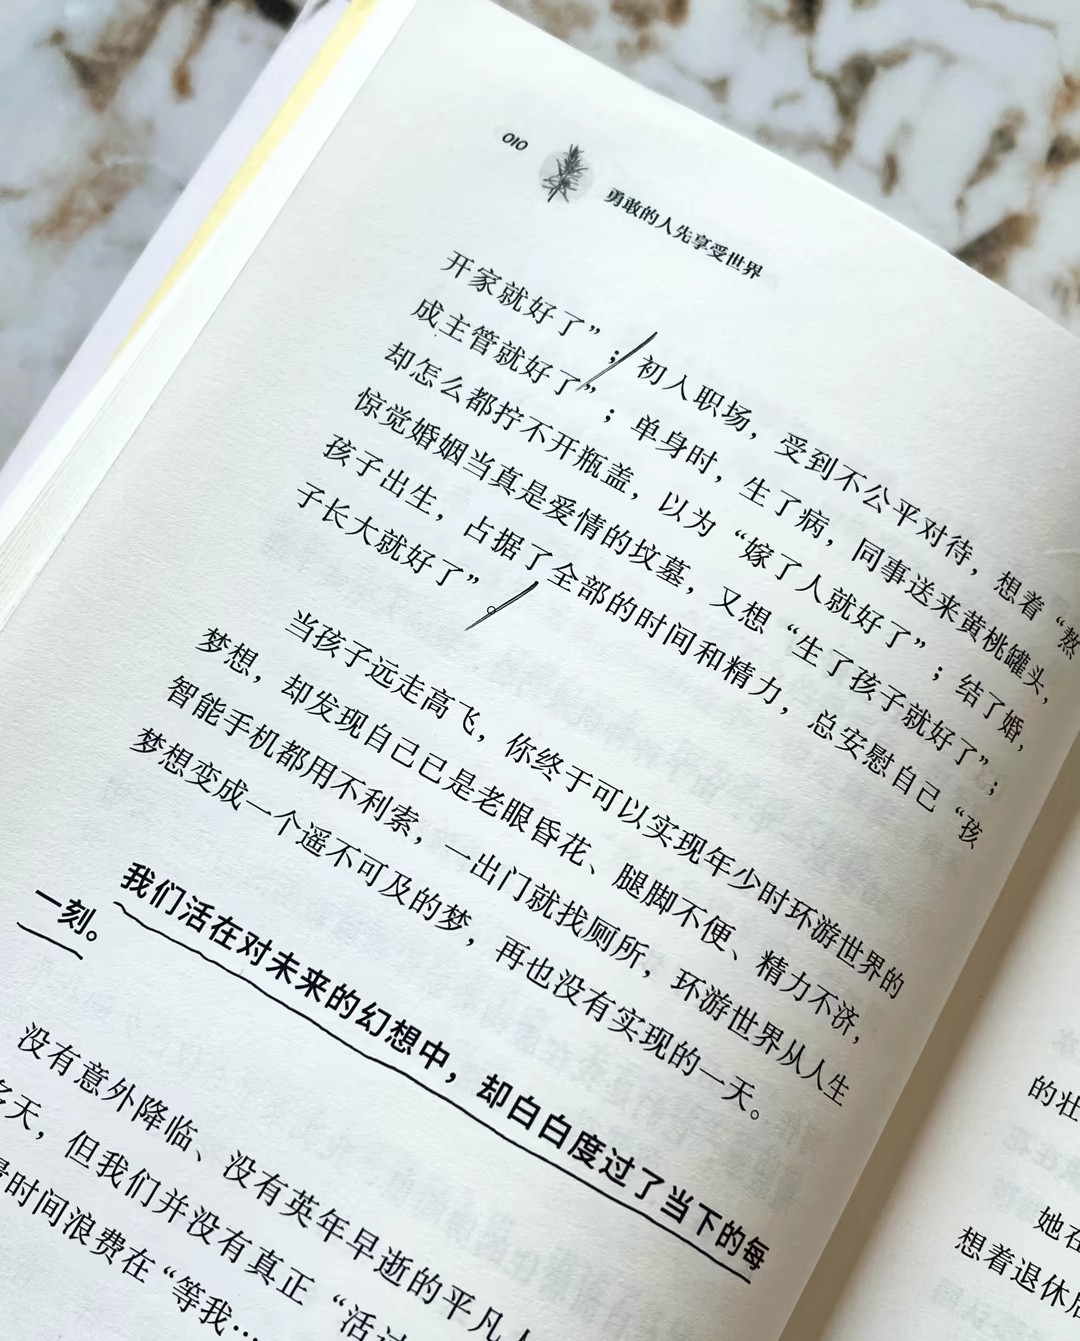 010
勇敢的人先享受世界
开家就好了”；初入职场，受到不公平对待，想着“熬
成主管就好了”；单身时，生了病，同事送来黄桃罐头，
却怎么都拧不开瓶盖，以为“嫁了人就好了”；结了婚，
惊觉婚姻当真是爱情的坟墓，又想“生了孩子就好了”；
孩子出生，占据了全部的时间和精力，总安慰自己“孩
子长大就好了”。
当孩子远走高飞，你终于可以实现年少时环游世界的
梦想，却发现自己已是老眼昏花、腿脚不便、精力不济，
智能手机都用不利索，一出门就找厕所，环游世界从人生
梦想变成一个遥不可及的梦，再也没有实现的一天。
我们活在对未来的幻想中，却白白度过了当下的每
一刻。
没有意外降临、没有英年早逝的平凡人
多天，但我们并没有真正“活过
时间浪费在“等我…
的壮
她在
想着退休后